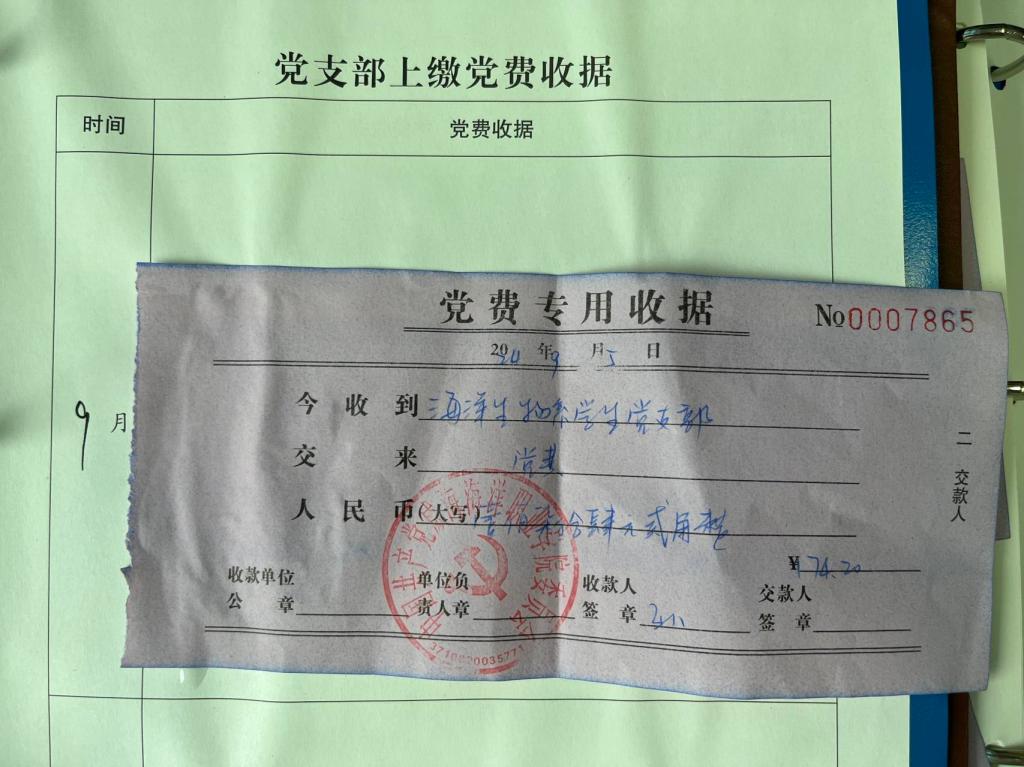 党支部上缴党费收据
时间 党费收据
9月
党费专用收据 №0007865
2024年9月5日
今收到 海洋生物系学生党支部
交来 党费
人民币(大写) 壹佰柒拾肆元贰角整
¥174.20
收款单位公章 单位负责人章 收款人签章 交款人签章
二 交款人
中国共产党 海洋 学院委员会
3710020035771